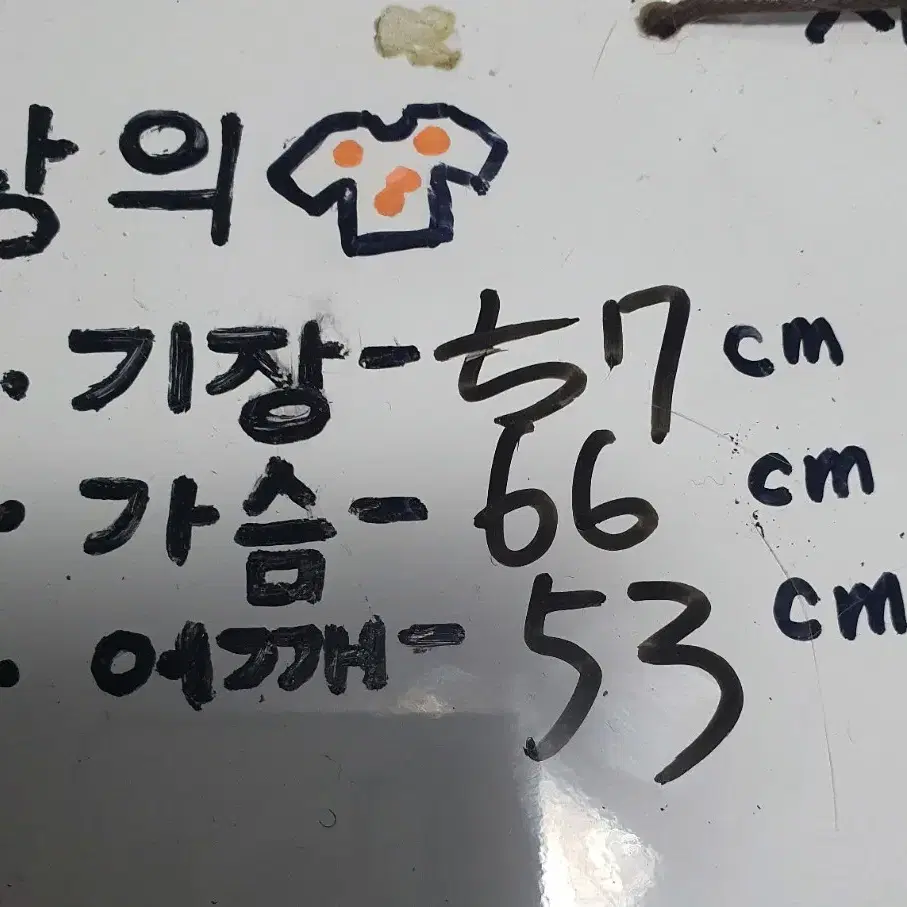 상의
· 기장-57cm
· 가슴-66cm
· 어깨-53cm